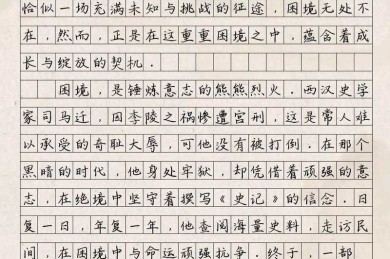 恰似一场充满未知与挑战的征途，困境无处不
在，然而，正是在这重重困境之中，蕴含着成
长与绽放的契机．
困境，是锤炼意志的熊熊烈火．西汉史学
家司马迁，因李陵之祸惨遭宫刑，这是常人难
以承受的奇耻大辱，可他没有被打倒．在那个
黑暗的时代，他身处牢狱，却凭借着顽强的意
志，在绝境中坚守着撰写《史记》的信念．日
复一日，年复一年，他查阅海量史料，走访民
间，在困境中与命运顽强抗争．终于，一部